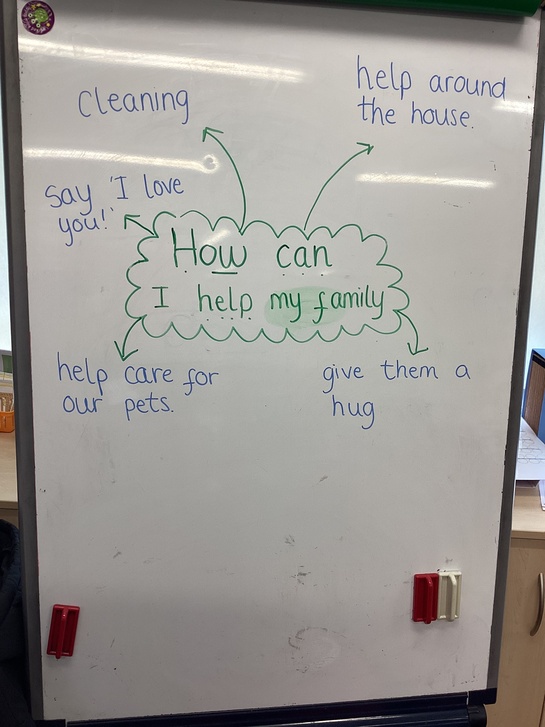 cleaning
help around
the house.
say 'I love
you!'
How can
I help my family
help care for
our pets.
give them a
hug